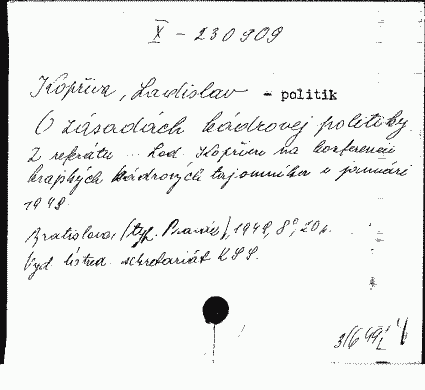 X - 230909
Kopřiva, Ladislav - politik
O zásadách kádrovej politiky
Z referátu ... Lad. Kopřivu na konferencii
krajských kádrových tajomníkov v januári
1949.
Bratislava, (typ. Pravda), 1949, 8°, 20 s.
Vyd. Ústred. sekretariát KSS.